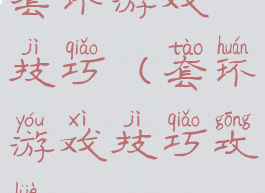 套环游戏
jì qiǎo tào huán
技巧（套环
yóu xì jì qiǎo gōng
游戏技巧攻
lüè